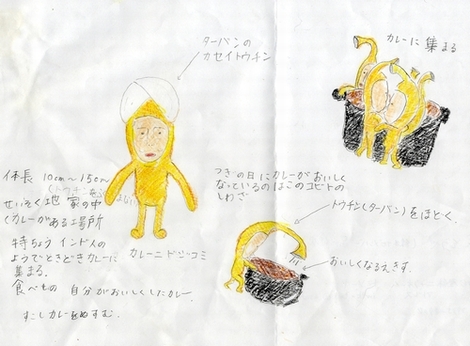 ターバンの
カセイトウチン
カレーに集まる
体長 10cm〜15cm
せいそく地 家の中
(カレーがある場所
特ちょう インド人の
ようでときどきカレーに
集まる。
食べもの 自分がおいしくしたカレー
すこしカレーをぬすむ。
カレーニドジーコミ
つぎの日にカレーがおいしく
なっているのはこのコビトの
しわざ
トウチン(ターバン)をほどく。
おいしくなるえきす。